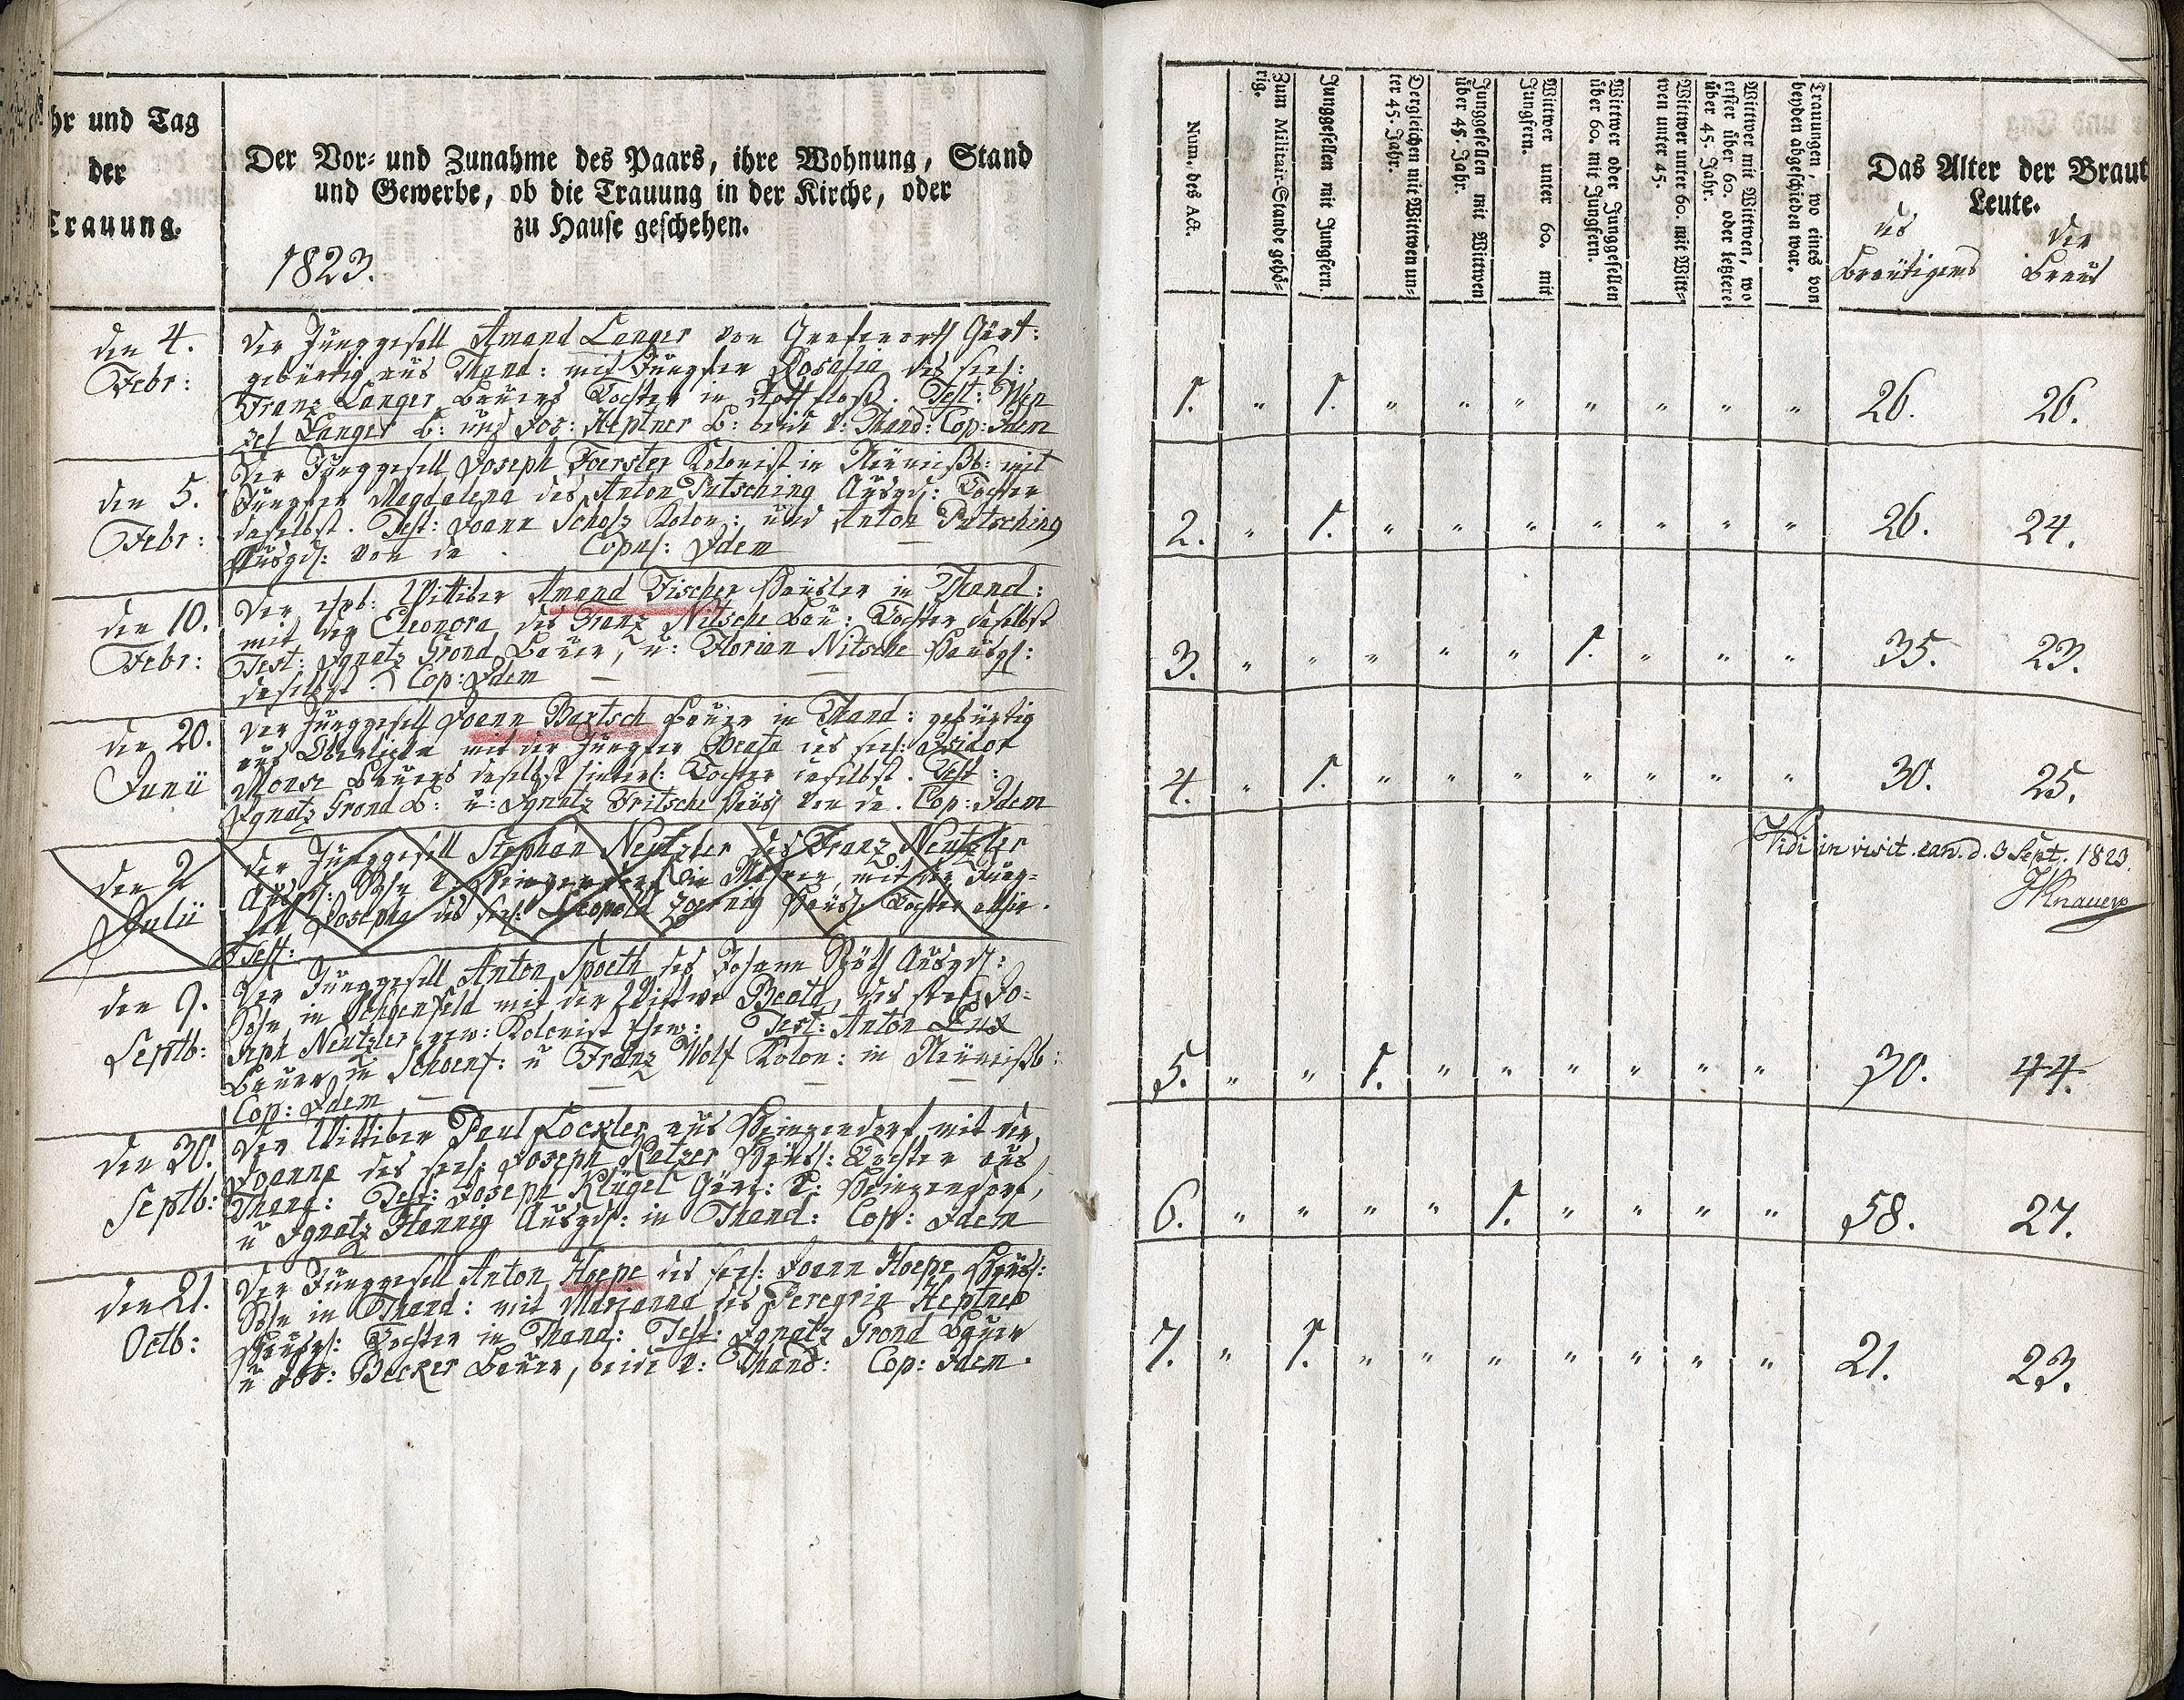 hr und Tag
der
Trauung.
Der Vor- und Zunahme des Paars, ihre Wohnung, Stand
und Gewerbe, ob die Trauung in der Kirche, oder
zu Hause geschehen.
1823.
den 4.
Febr:
Der Junggesell Amand Langer von Grafenorth Gärt:
gebürtig aus Thand: mit Jungfer Rosalia des seel:
Franz Langer Bauers Tochter in Test: Wen
zel Langer B: und Jos: Heptner B: beide v: Thand: Cop: Idem
den 5.
Febr:
Der Junggesell Joseph Foerster Kolonist in Neuweißb: mit
Jungfer Magdalena des Anton Putsching Ausged: Tochter
daselbst. Test: Joann Scholz Kolon: und Anton Putsching
Ausged: von da. Copul: Idem
den 10.
Febr:
Der Wittiber Amand Fischer Häusler in Thand:
mit der Eleonora des Franz Nitsche Bau: Tochter daselbst
Test: Ignatz Grond Bauer, u: Florian Nitsche
daselbst. Cop: Idem
den 20.
Junii
Der Junggesell Joann Bartsch Bauer in Thand: gebürtig
aus mit der Jungfer Beata des seel: Isidor
Monse Bauers daselbst hinterl: Tochter daselbst. Test:
Ignatz Grond B: u: Ignatz Fritsche Häusl von da. Cop: Idem
den 2
Julii
Der Junggesell Stephan Neutzler des Franz Neutzler
Sohn v. in Mähren, mit der Jung-
fer Josepha des seel: Leopold Häusl: Tochter
Test:
den 9.
Septb:
Der Junggesell Anton Spoeth des Johann Späth Ausged:
Sohn in Schoenfeld mit der Wittwe Beata, des seel: Jo-
seph Neutzler gew: Kolonist Test: Anton Lux
Bauer in Schoenf: u Franz Wolf Kolon: in Neuweißb:
Cop: Idem
den 30.
Septb:
Der Wittiber Paul Lockler aus Heinzendorf mit der
Joanna des seel: Joseph Ratzer Häusl: Tochter aus
Thand: Test: Joseph Klügel Gärt: v: Heinzendorf,
u Ignatz Hannig Ausged: in Thand: Cop: Idem
den 21.
Octb:
Der Junggesell Anton Hoepe des seel: Joann Hoepe Häusl:
Sohn in Thand: mit Marianna des Peregrin Heptner
Tochter in Thand: Test: Ignatz Grond Bauer
u Jos: Becker Bauer, beide v: Thand: Cop: Idem.
Num. des Act.
Zum Militair-Stande gehö-
rig.
Junggesellen mit Jungfern.
Dergleichen mit Wittwen un-
ter 45. Jahr.
Junggesellen mit Wittwen
über 45. Jahr.
Wittwer unter 60. mit
Jungfern.
Wittwer oder Junggesellen
über 60. mit Jungfern.
Wittwer unter 60. mit Witt-
wen unter 45.
Wittwer mit Wittwen, wo
erster über 60. oder letztere
über 45. Jahr.
Trauungen, wo eines von
beyden abgeschieden war.
Das Alter der Braut
Leute.
des
Bräutigams
der
Braut
1. " 1. " " " " " " " 26. 26.
2. " 1. " " " " " " " 26. 24.
3. " " " " " 1. " " " 35. 23.
4. " 1. " " " " " " " 30. 25.
Vidi in visit. can. d. 3 Sept. 1823.
Knauer
5. " " 1. " " " " " " 30. 44.
6. " " " " 1. " " " " 58. 27.
7. " 1. " " " " " " " 21. 23.